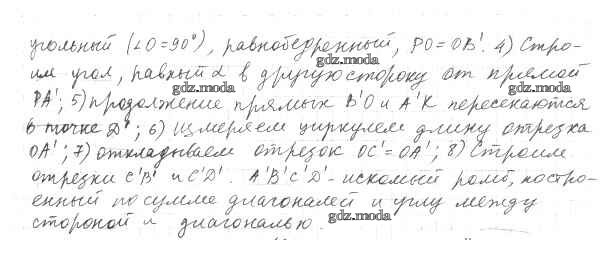 угольный (∠O=90°), равнобедренный, PO=OB'. 4) Стро-
gdz.moda
им угол, равный α в другую сторону от прямой
gdz.moda
PA'; 5) продолжение прямых B'O и A'K пересекаются
gdz.moda
в точке D'; 6) Измеряем циркулем длину отрезка
gdz.moda
OA'; 7) откладываем отрезок OC'=OA'; 8) Строим
gdz.moda
отрезки C'B' и C'D'. A'B'C'D'- искомый ромб, постро-
енный по сумме диагоналей и углу между
gdz.moda
стороной и диагональю.
gdz.moda